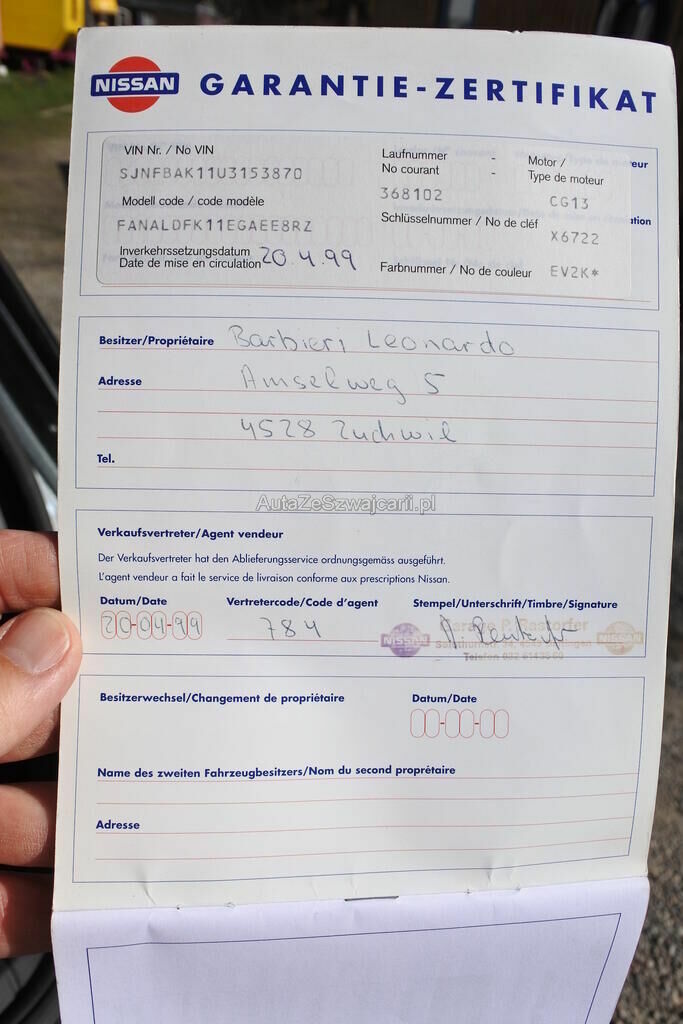 NISSAN GARANTIE-ZERTIFIKAT
VIN Nr. / No VIN
SJNFBAK11U3153870
Modell code / code modèle
FANALDFK11EGAEE8RZ
Inverkehrssetzungsdatum
Date de mise en circulation 20.4.99
Laufnummer -
No courant -
368102
Schlüsselnummer / No de cléf
Farbnummer / No de couleur
Motor /
Type de moteur
CG13
X6722
EV2K*
Besitzer/Propriétaire Barbieri Leonardo
Adresse Amselweg 5
4528 Zuchwil
Tel.
AutaZeSzwajcarii.pl
Verkaufsvertreter/Agent vendeur
Der Verkaufsvertreter hat den Ablieferungsservice ordnungsgemäss ausgeführt.
L'agent vendeur a fait le service de livraison conforme aux prescriptions Nissan.
Datum/Date Vertretercode/Code d'agent Stempel/Unterschrift/Timbre/Signature
20-04-99 784
Garage P. Rastorfer
NISSAN NISSAN
Telefon 032
Besitzerwechsel/Changement de propriétaire Datum/Date
00-00-00
Name des zweiten Fahrzeugbesitzers/Nom du second proprétaire
Adresse